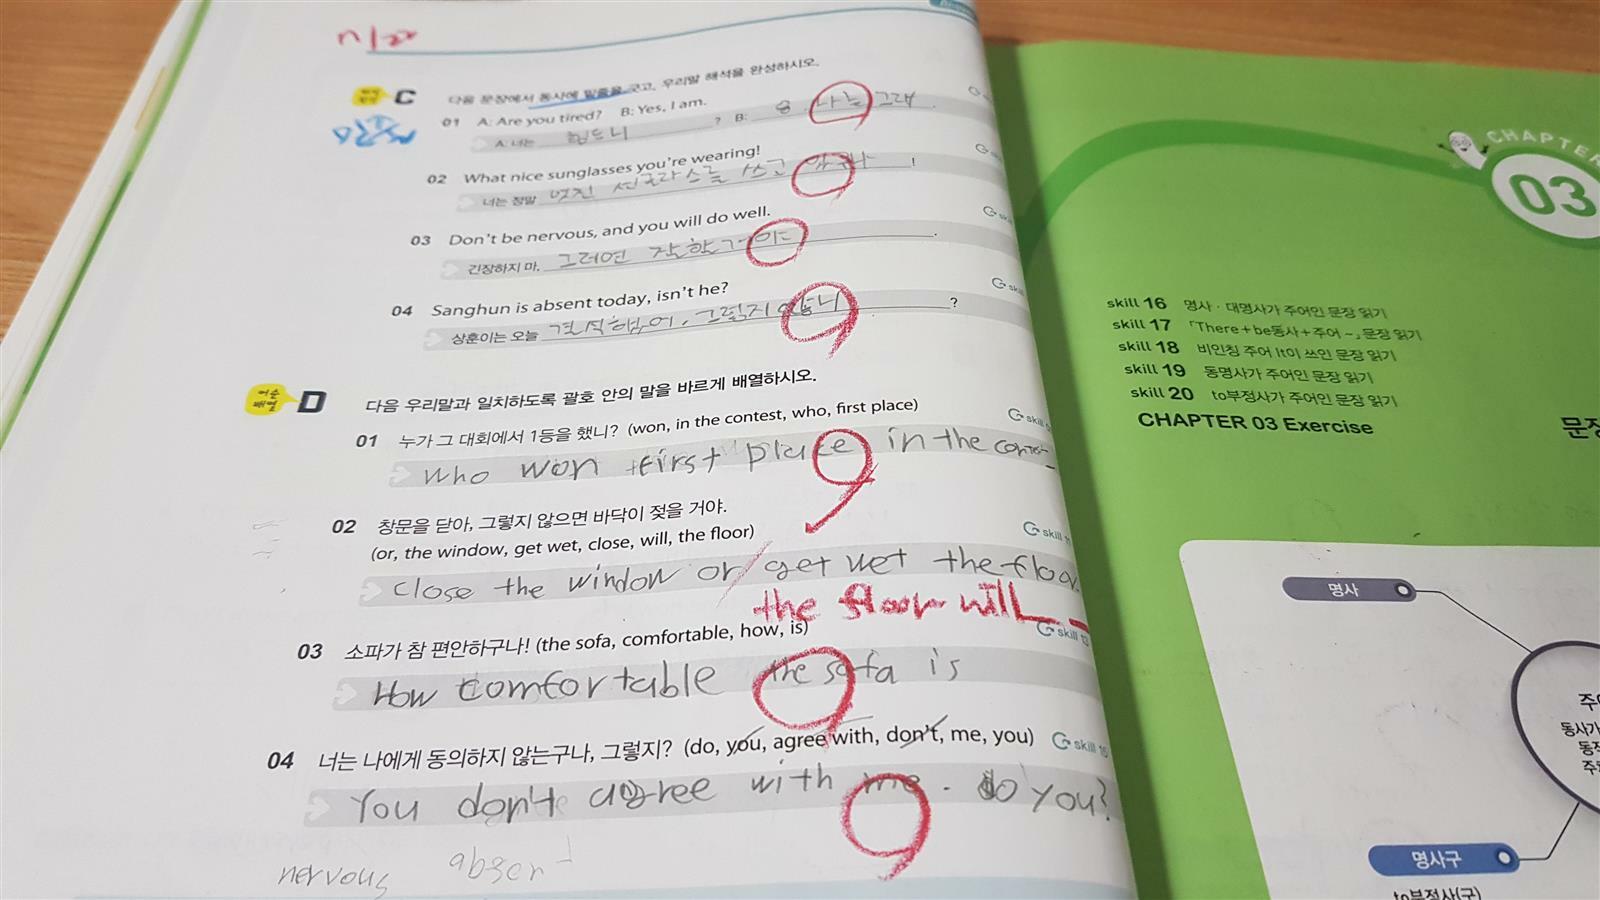 C 다음 문장에서 동사에 밑줄을 긋고, 우리말 해석을 완성하시오.
01 A: Are you tired? B: Yes, I am.
A: 너는 힘드니 ? B: 응 나는 그래
02 What nice sunglasses you're wearing!
너는 정말 멋진 선글라스를 쓰고 !
03 Don't be nervous, and you will do well.
긴장하지 마, 그러면 잘할거야 .
04 Sanghun is absent today, isn't he?
상훈이는 오늘 결석했어, 그렇지 않니 ?
D 다음 우리말과 일치하도록 괄호 안의 말을 바르게 배열하시오.
01 누가 그 대회에서 1등을 했니? (won, in the contest, who, first place)
who won first place in the
02 창문을 닫아, 그렇지 않으면 바닥이 젖을 거야.
(or, the window, get wet, close, will, the floor)
close the window or get wet the floor
the floor will
03 소파가 참 편안하구나! (the sofa, comfortable, how, is)
How comfortable the sofa is
04 너는 나에게 동의하지 않는구나, 그렇지? (do, you, agree with, don't, me, you)
You don't agree with me. do you?
nervous absent
CHAPTER
03
skill 16 명사·대명사가 주어인 문장 읽기
skill 17 「There+be동사+주어 ~」 문장 읽기
skill 18 비인칭 주어 It이 쓰인 문장 읽기
skill 19 동명사가 주어인 문장 읽기
skill 20 to부정사가 주어인 문장 읽기
CHAPTER 03 Exercise
명사
명사구
to부정사(구)